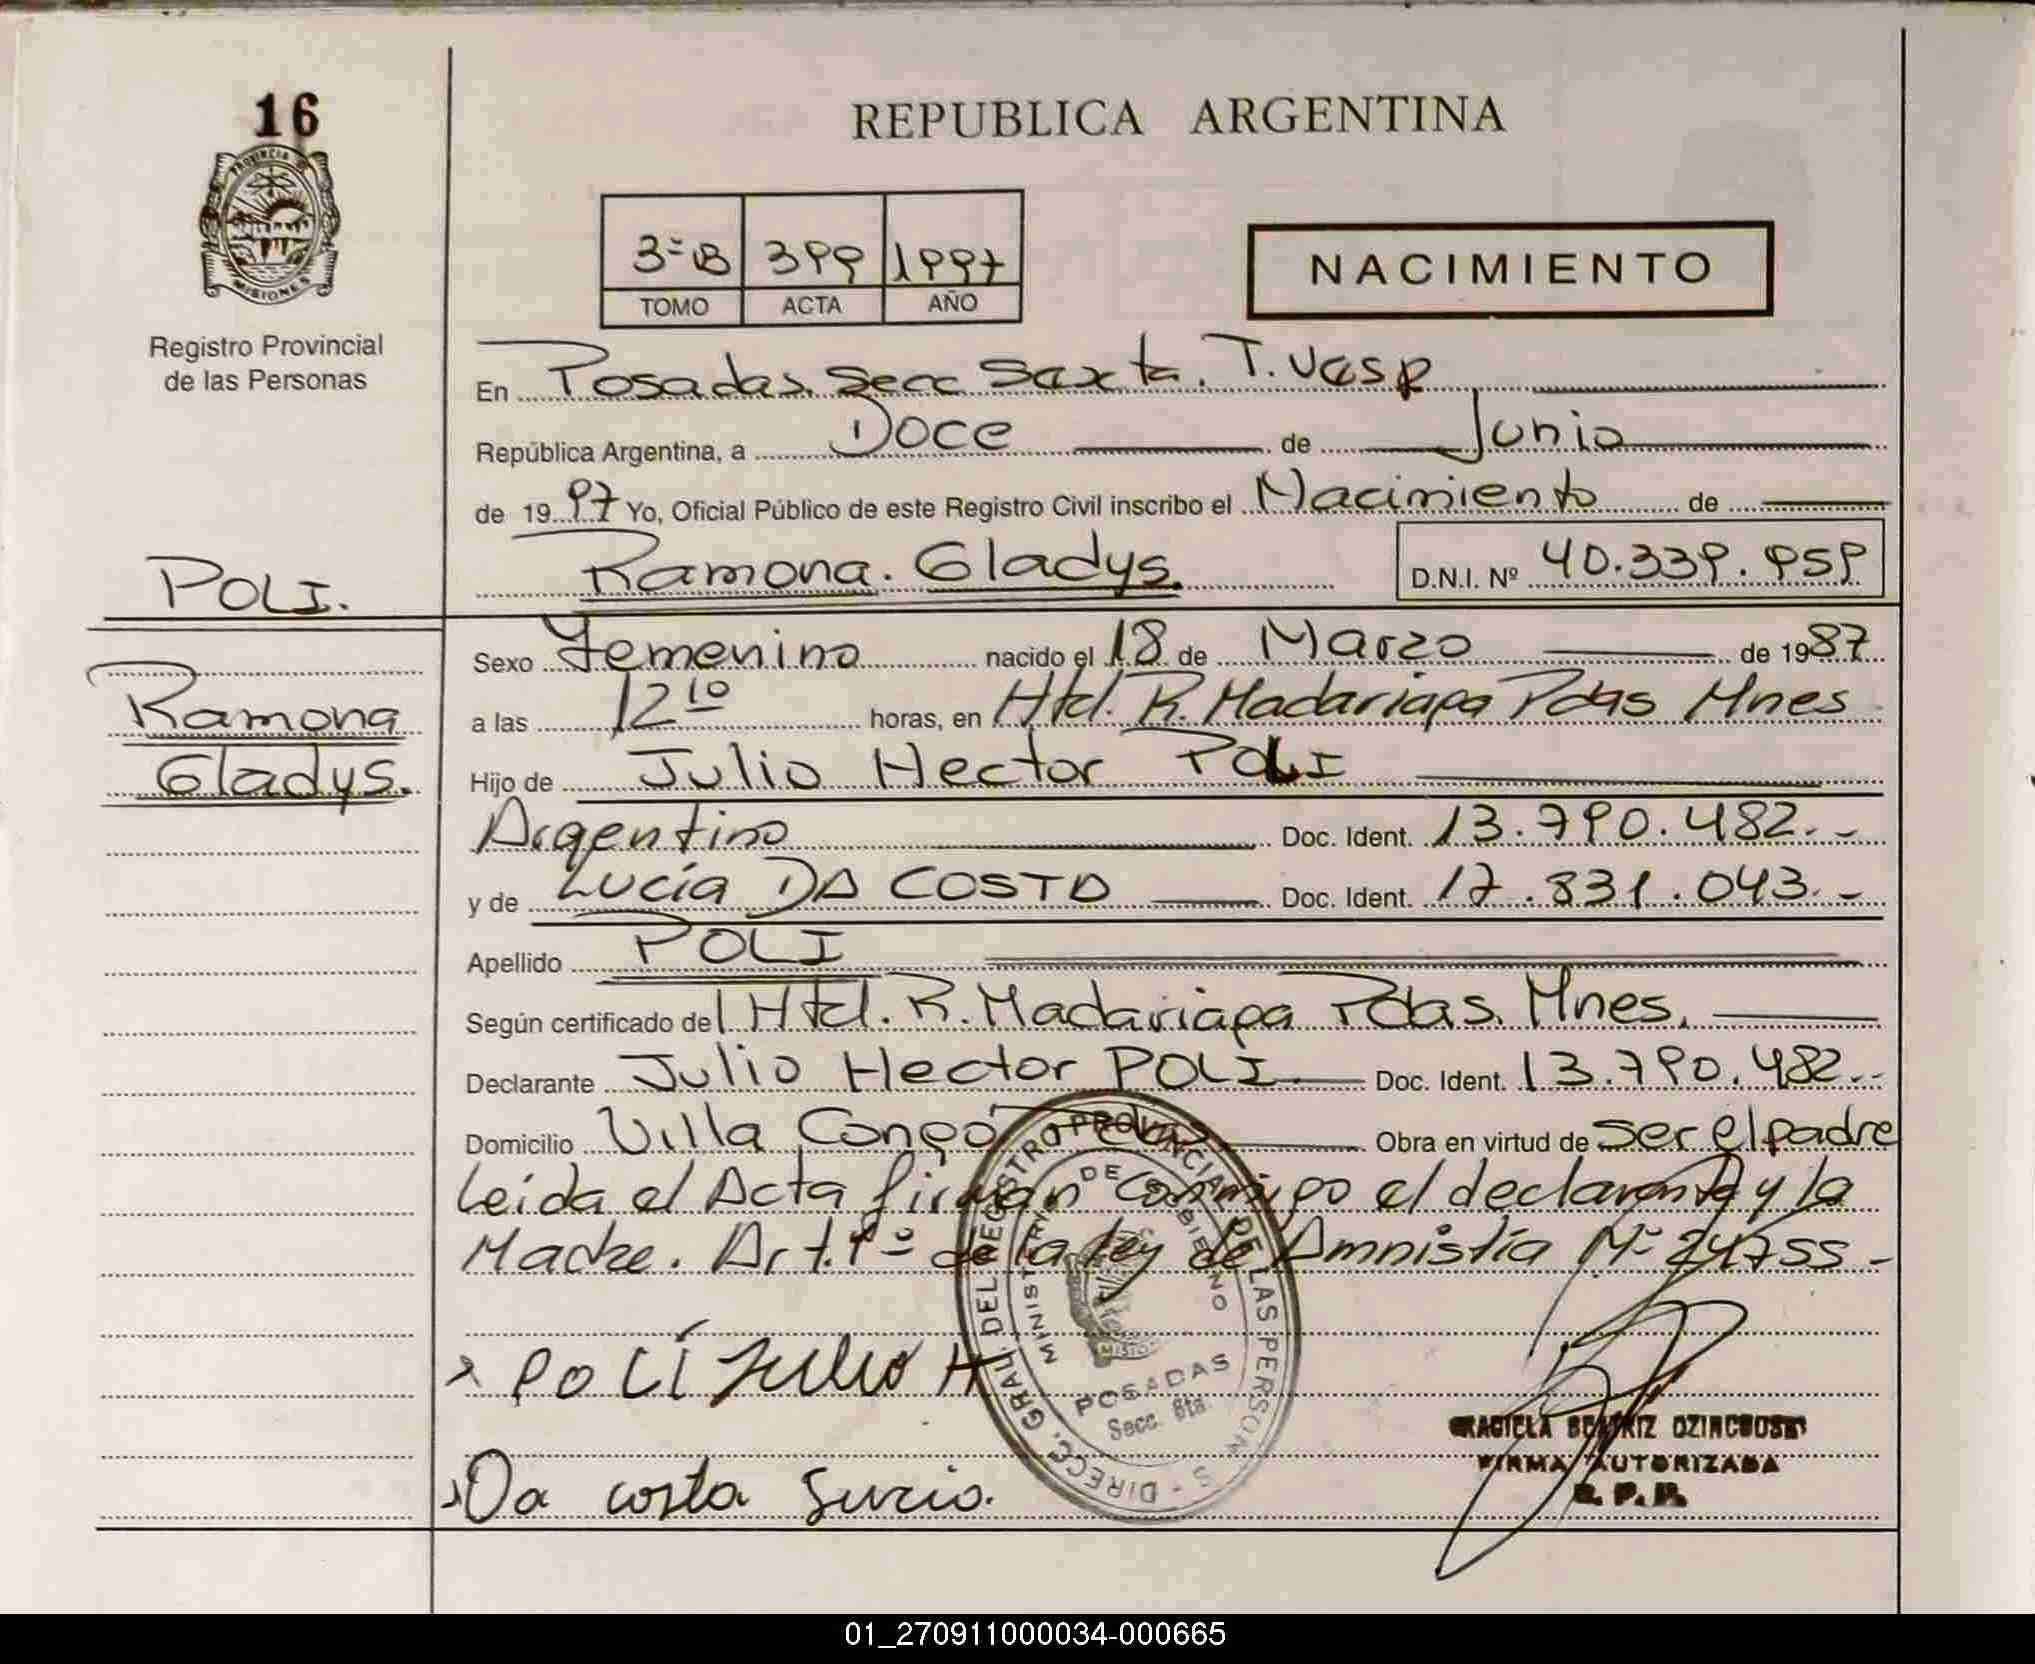 16
PROVINCIA DE
MISIONES
Registro Provincial
de las Personas
REPUBLICA ARGENTINA
3º B 399 1997
TOMO ACTA AÑO
NACIMIENTO
En Posadas. Secc Sexta. T. Vesp
República Argentina, a Doce de Junio
de 1997 Yo, Oficial Público de este Registro Civil inscribo el Nacimiento de
Ramona. Gladys. D.N.I. Nº 40.339.959
POLI.
Ramona
Gladys.
Sexo Femenino nacido el 18 de Marzo de 1987
a las 12 10 horas, en Htal. R. Madariaga Pdas Mnes
Hijo de Julio Hector POLI
Argentino Doc. Ident. 13.790.482.-
y de Lucía DA COSTA Doc. Ident. 17.831.043.-
Apellido POLI
Según certificado del Htal. R. Madariaga Pdas. Mnes.
Declarante Julio Hector POLI Doc. Ident. 13.790.482.-
Domicilio Villa Obra en virtud de ser el padre
Leida el Acta firman conmigo el declarante y la
Madre. Art. 1º de la Ley de Amnistía Nº 24755 -
x POLÍ Julio H
x Da costa Lucia.
DIRECC. GRAL. DEL REGISTRO PROVINCIAL DE LAS PERSONAS
MINISTERIO DE GOBIERNO
POSADAS
Secc. 6ta.
GRACIELA BEATRIZ
FIRMA AUTORIZADA
R. P. P.
01_270911000034-000665